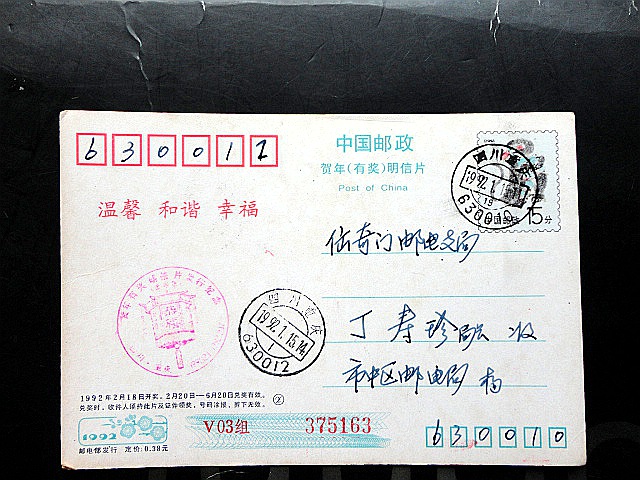 630012
中国邮政
贺年(有奖)明信片
Post of China
温馨 和谐 幸福
四川重庆
1992.1.15.
630010
中国邮政 15分
邮电支局
四川重庆
1992.1.15.14
1
630012
丁寿珍 收
市中区邮电局
1992年2月18日开奖。2月20日—6月20日兑奖有效。
兑奖时、收件人须持此片及证件领奖，号码涂损、拆下无效。
1992
V03组
375163
邮电部发行 定价:0.38元
630010